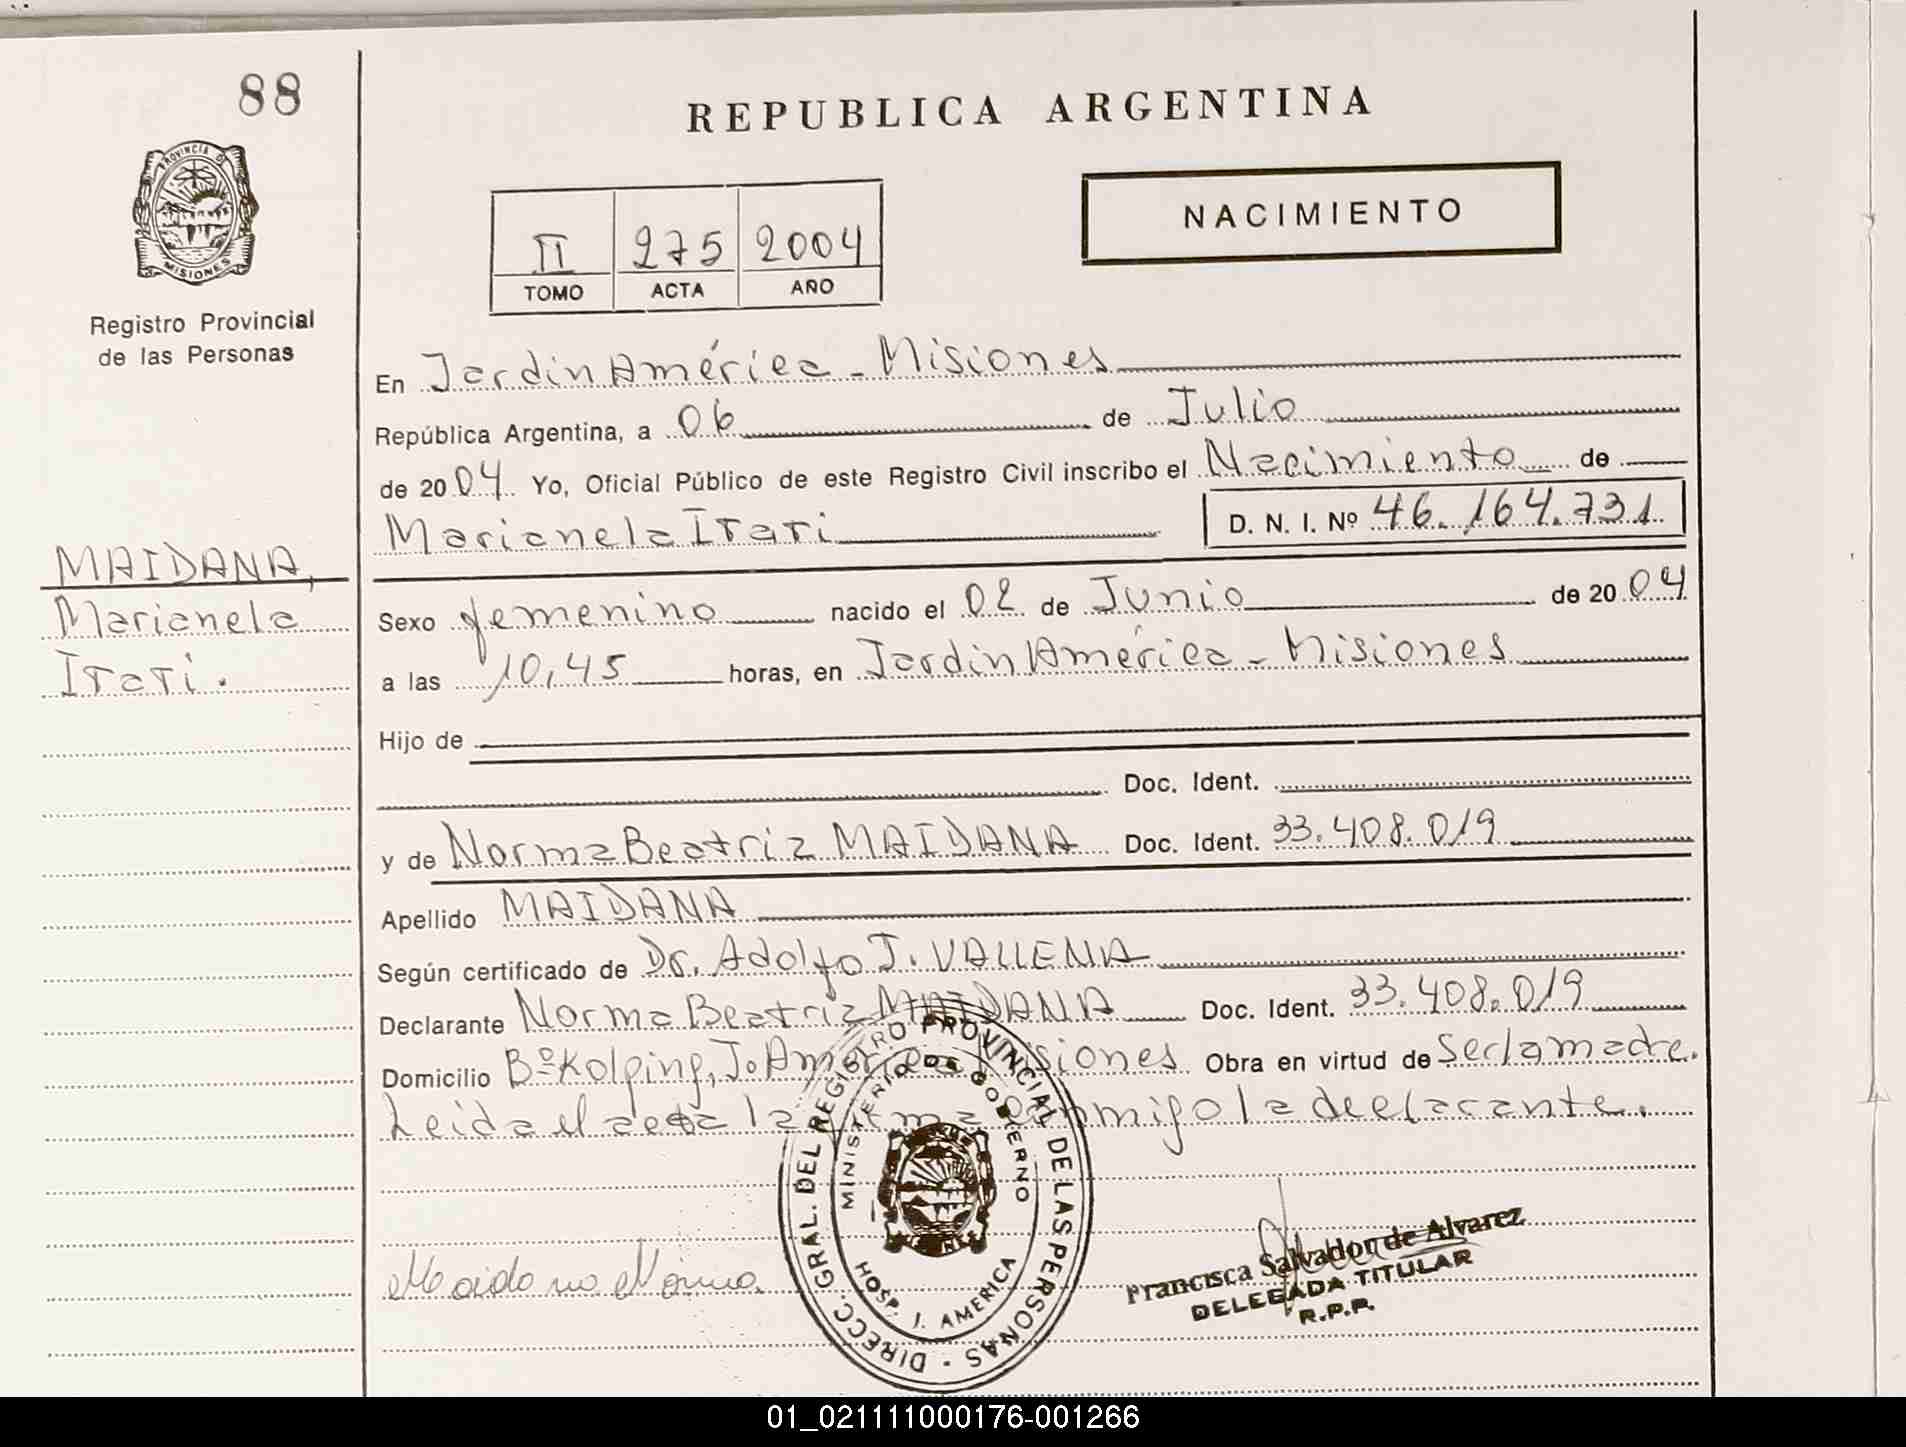 88
REPUBLICA ARGENTINA
PROVINCIA DE
MISIONES
NACIMIENTO
II 275 2004
TOMO ACTA AÑO
Registro Provincial
de las Personas
En Jardin América - Misiones
República Argentina, a 06 de Julio
de 2004 Yo, Oficial Público de este Registro Civil inscribo el Nacimiento de
Marianela Itati D. N. I. Nº 46.164.731
MAIDANA,
Marianela
Itati.
Sexo femenino nacido el 02 de Junio de 2004
a las 10,45 horas, en Jardin América - Misiones
Hijo de
Doc. Ident.
y de Norma Beatriz MAIDANA Doc. Ident. 33.408.019
Apellido MAIDANA
Según certificado de Dr. Adolfo J. VALLENA
Declarante Norma Beatriz MAIDANA Doc. Ident. 33.408.019
Domicilio Bº Kolping, J. América Misiones Obra en virtud de ser la madre.
Leida el acta la firma conmigo la declarante.
DIRECC. GRAL. DEL REGISTRO PROVINCIAL DE LAS PERSONAS
MINISTERIO DE GOBIERNO
HOSP. J. AMERICA
Francisca Salvador de Alvarez
DELEGADA TITULAR
R.P.P.
01_021111000176-001266